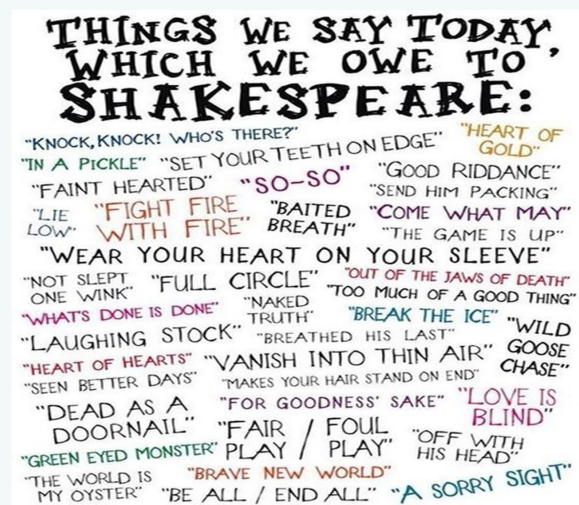 THINGS WE SAY TODAY,
WHICH WE OWE TO
SHAKESPEARE:
"KNOCK, KNOCK! WHO'S THERE?"
"HEART OF
GOLD"
"IN A PICKLE" "SET YOUR TEETH ON EDGE"
"FAINT HEARTED" "SO-SO" "GOOD RIDDANCE"
"SEND HIM PACKING"
"LIE
LOW"
"FIGHT FIRE
WITH FIRE"
"BAITED
BREATH"
"COME WHAT MAY"
"THE GAME IS UP"
"WEAR YOUR HEART ON YOUR SLEEVE"
"NOT SLEPT
ONE WINK"
"FULL CIRCLE" "OUT OF THE JAWS OF DEATH"
"TOO MUCH OF A GOOD THING"
"WHAT'S DONE IS DONE"
"NAKED
TRUTH"
"BREAK THE ICE"
"WILD
GOOSE
CHASE"
"LAUGHING STOCK" "BREATHED HIS LAST"
"HEART OF HEARTS" "VANISH INTO THIN AIR"
"SEEN BETTER DAYS" "MAKES YOUR HAIR STAND ON END"
"DEAD AS A
DOORNAIL"
"FOR GOODNESS' SAKE"
"LOVE IS
BLIND"
"FAIR / FOUL
PLAY / PLAY"
"OFF WITH
HIS HEAD"
"GREEN EYED MONSTER"
"THE WORLD IS
MY OYSTER"
"BRAVE NEW WORLD"
"BE ALL / END ALL" "A SORRY SIGHT"